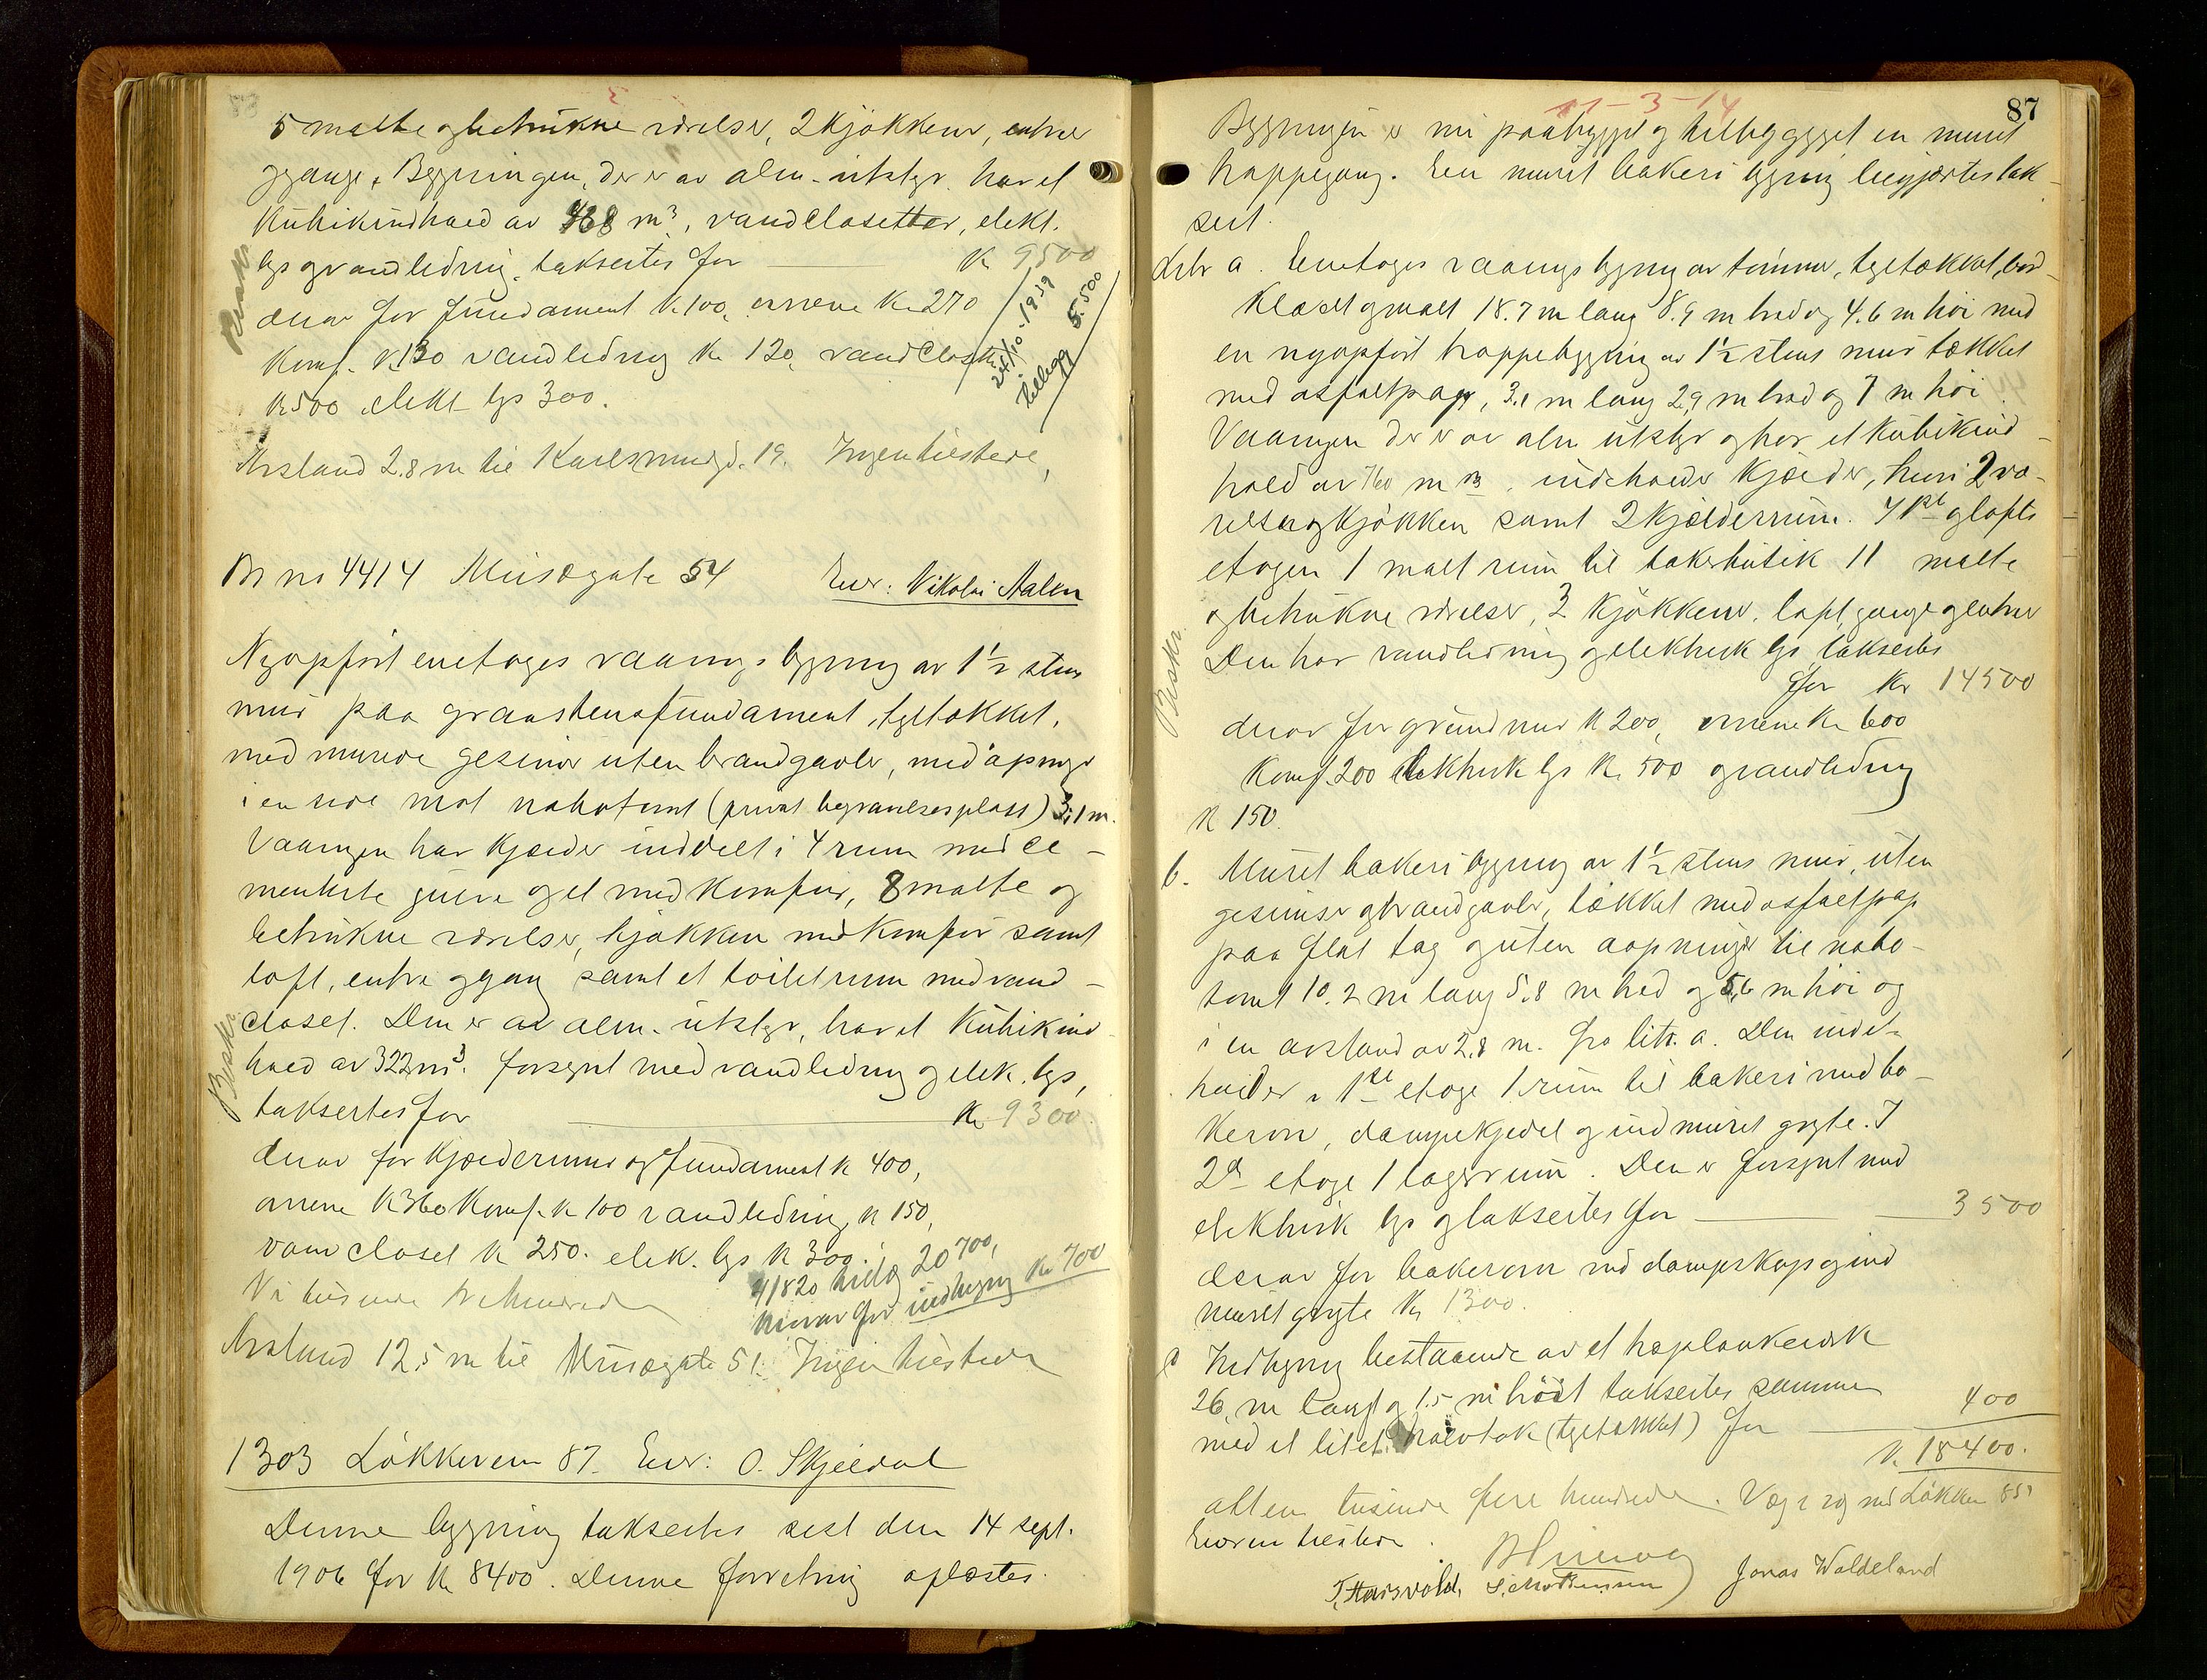 5 malte og betrukne værelser, 2 kjøkkener, entreer
og gange. Bygningen, der er av alm. utstyr, har et
Kubikindhold av 468 m³, vandclosetter, elekt.
lys og vandledning, taksertes for K 9500
derav for fundament K. 100, ovnene Kr. 270
Komf. K 130 vandledning Kr 120, vandclosetter
K 500 elekt lys 300.
24/10-1939
tillegg 5.500
Beskr.
Avstand 2.8 m til Karlsmindegd. 19. Ingen tilstede,
Br no 4414 Musægate 54 Eier: Nikolai Aslen
Nyopført enetages vaaningsbygning av 1½ stens
mur paa graastensfundament, tegltækket,
med murede gesimser uten brandgavler, med åpninger
i en side mot nabotomt (privat begravelsesplass) 3,1 m.
Vaaningen har Kjælder inddelt i 4 rum med ce-
menterte gulve og et med Komfur, 8 malte og
betrukne værelser, kjøkken med Komfur samt
loft, entre og gang samt et toiletrum med vand-
closet. Den er av alm. utstyr, har et Kubikind-
hold av 322 m³. forsynt med vandledning og elek. lys,
taksertes for Kr 9300.
Beskr.
derav for Kjælderrum og fundament K 400,
ovnene K 360 Komf. K 100 vandledning K 150,
vandcloset K 250. elek. lys K 300.
Ni tusinde tre hundrede
4/8 20 tillæg 20 700,
hvorav for indhegning Kr 700
Avstand 12,5 m til Musægate 51. Ingen tilstede
1303 Løkkeveien 87. Eier: O. Skjeldal
Denne bygning taksertes sist den 14 sept.
1906 for K 8400. Denne forretning oplæstes.
11-3-14
87
Bygningen er nu paabygget og tilbygget en muret
trappegang. En muret bakeribygning begjærtes tak-
sert.
Litr a. Enetages vaaningsbygning av tømmer, tegltækket, bord-
Klædt og malt 18.7 m lang 8.9 m bred og 4.6 m høi med
en nyopført trappebygning av 1½ stens mur tækket
med asfaltpap, 3.1 m lang 2,9 m bred og 7 m høi.
Vaaningen der er av alm utstyr og har et Kubikind-
hold av 760 m m3, indeholder Kjælder, hvori 2 væ-
relser og Kjøkken samt 2 Kjælderrum. I 1ste og lofts
etagen 1 malt rum til bakerbutik 11 malte
og betrukne værelser, 3 Kjøkkener, loft, gange og entreer
Den har vandledning og elektrisk lys taksertes
for Kr 14500
Beskr.
derav for grundmur K 200, ovnene Kr 600
Komf. 200 elektrisk lys K. 500 og vandledning
K 150.
b. Muret bakeribygning av 1½ stens mur, uten
gesimser og brandgavler, tækket med asfaltpap
paa flat tag og uten aapninger til nabo-
tomt 10.2 m lang 5.8 m bred og 5,6 m høi og
i en avstand av 2.8 m. fra litr. a. Den inde-
holder i 1ste etage 1 rum til bakeri med ba-
kerovn, dampkjedel og indmuret gryte. I
2d etage 1 lagerrum. Den er forsynt med
elektrisk lys og taksertes for 3500
derav for bakerovn med dampskap og ind
muret gryte Kr 1300.
c Indhegning bestaaende av et haplankeværk
26, m langt og 1.5 m høit taksertes sammen
med et litet halvtak (tegltækket) for 400
K. 18400.
atten tusinde fire hundrede. Væg i væg med Løkkev 85
Eieren tilstede.
T. Haisvold, S. Mortensen Jonas Waldeland